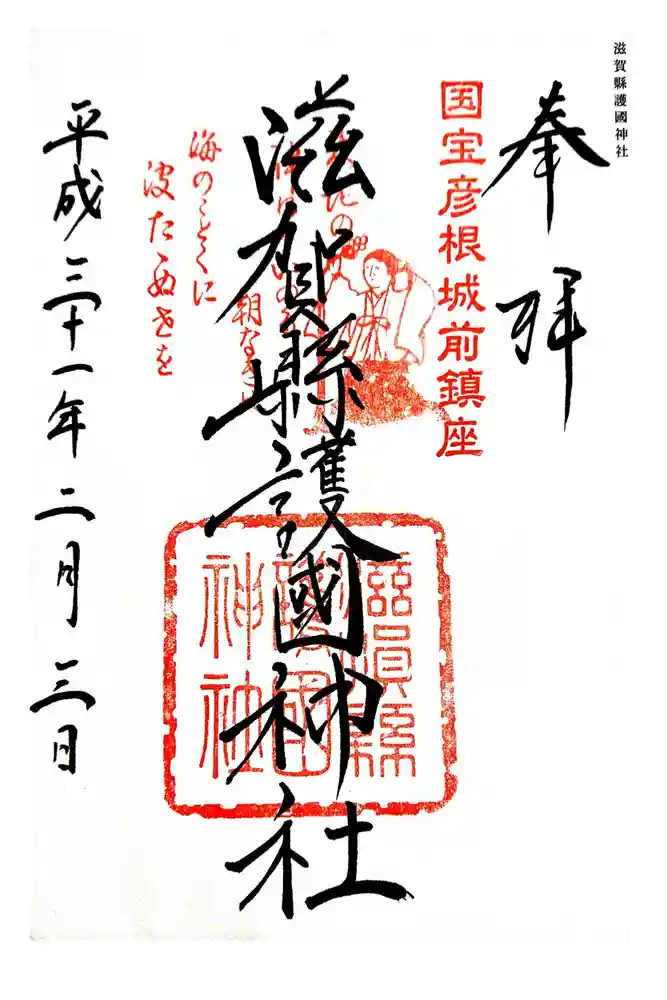 滋賀縣護國神社
奉拝
国宝彦根城前鎮座
滋賀縣護國神社
滋賀縣護國神社
朝な
海のことくに
波たゝぬせを
平成三十一年二月三日